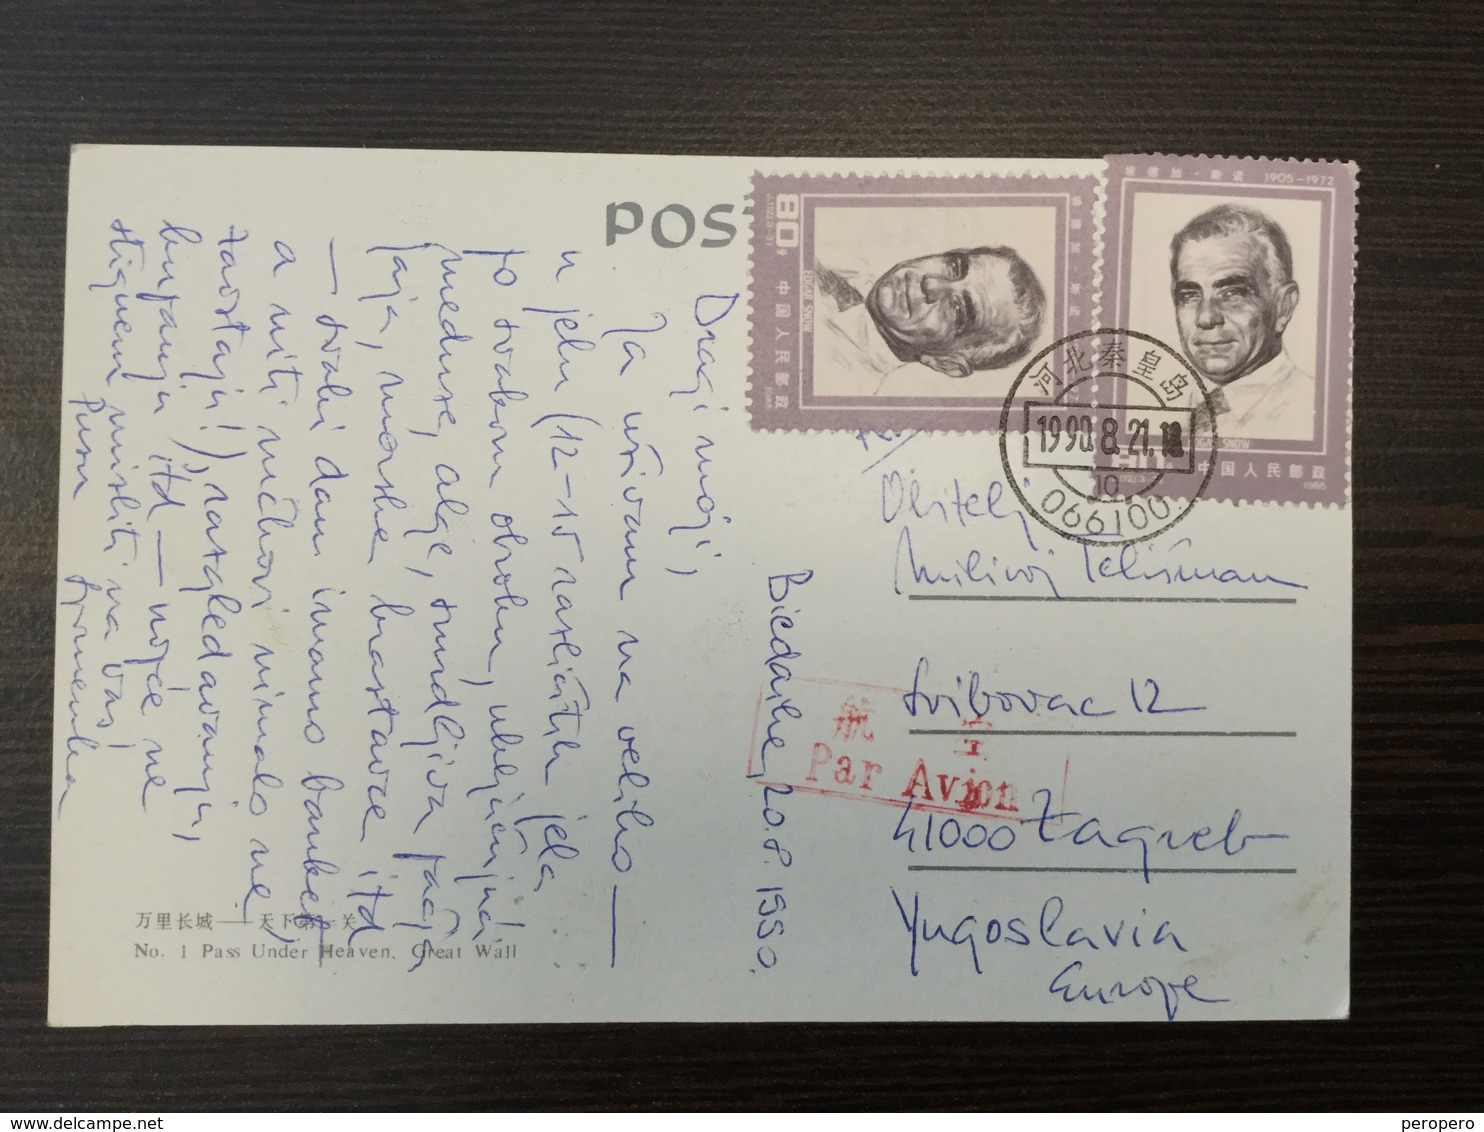 POS
Dragi moji,
Ja uživam na veliko —
u jelu (12-15 različitih jela
po svakom obroku, uključujući
meduze, alge, smrdljiva
jaja, morske krastavce itd
— svaki dan imamo banket
a niti mučkovi nimalo ne
zaostaju!), razgledavanju,
kupanju itd — nopće ne
stignem misliti na vas!
Pusa
Beidaihe, 20.8.1990.
Obitelj
Milivoj Telišman
Svibovac 12
41000 Zagreb
Yugoslavia
Europe
万里长城——天下第一关
No. 1 Pass Under Heaven, Great Wall
航空
Par Avion
80分
中国人民邮政
埃德加·斯诺
EDGAR SNOW
埃德加·斯诺 1905-1972
EDGAR SNOW
中国人民邮政
1985
河北秦皇岛
1990.8.21.18
10
066100
peropero